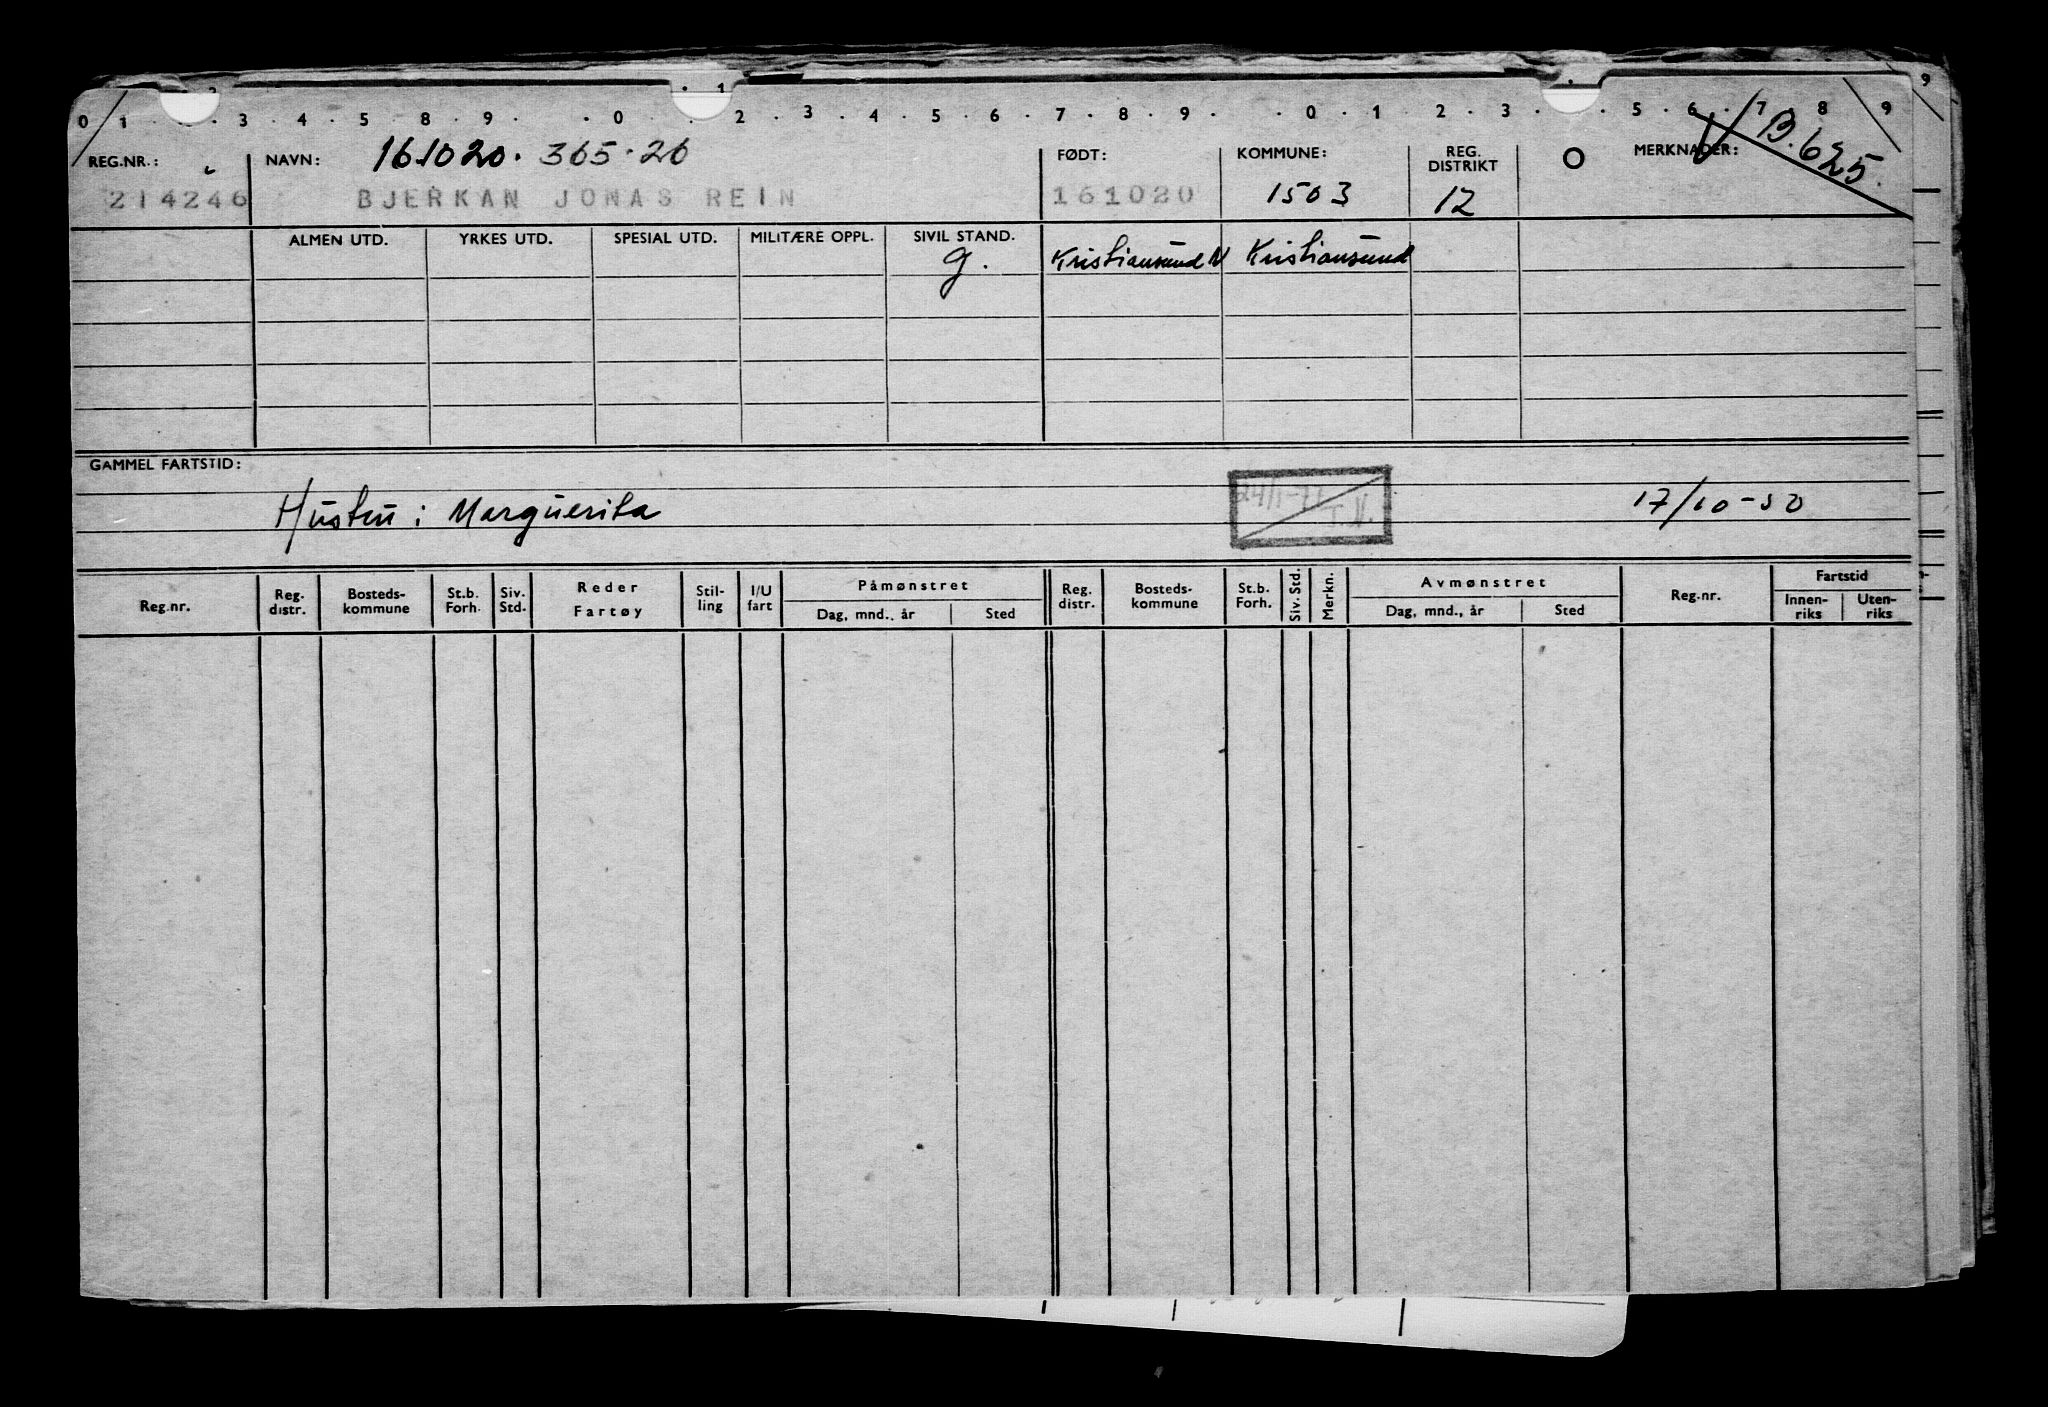 0 1 . . . 3 . 4 . 5 . 8 . 9 . . 0 . . 2 . 3 . 4 . 5 . 6 . 7 . 8 . 9 . . 0 . 1 . 2 . 3 . . . 5 . 6 . 7 . 8 . 9
REG.NR.: NAVN: 161020. 365.26 FØDT: KOMMUNE: REG. DISTRIKT O MERKNADER: B.625.
214246 BJERKAN JONAS REIN 161020 1503 12
ALMEN UTD. YRKES UTD. SPESIAL UTD. MILITÆRE OPPL. SIVIL STAND.
g. Kristiansund N Kristiansund
GAMMEL FARTSTID:
Hustru : Marguerita 17/10-50
Reg.nr. Reg. distr. Bosteds- kommune St.b. Forh. Siv. Std. Reder Fartøy Stil- ling I/U fart Påmønstret Dag, mnd., år Sted Reg. distr. Bosteds- kommune St.b. Forh. Siv. Std. Merkn. Avmønstret Dag, mnd., år Sted Reg.nr. Fartstid Innen- riks Uten- riks